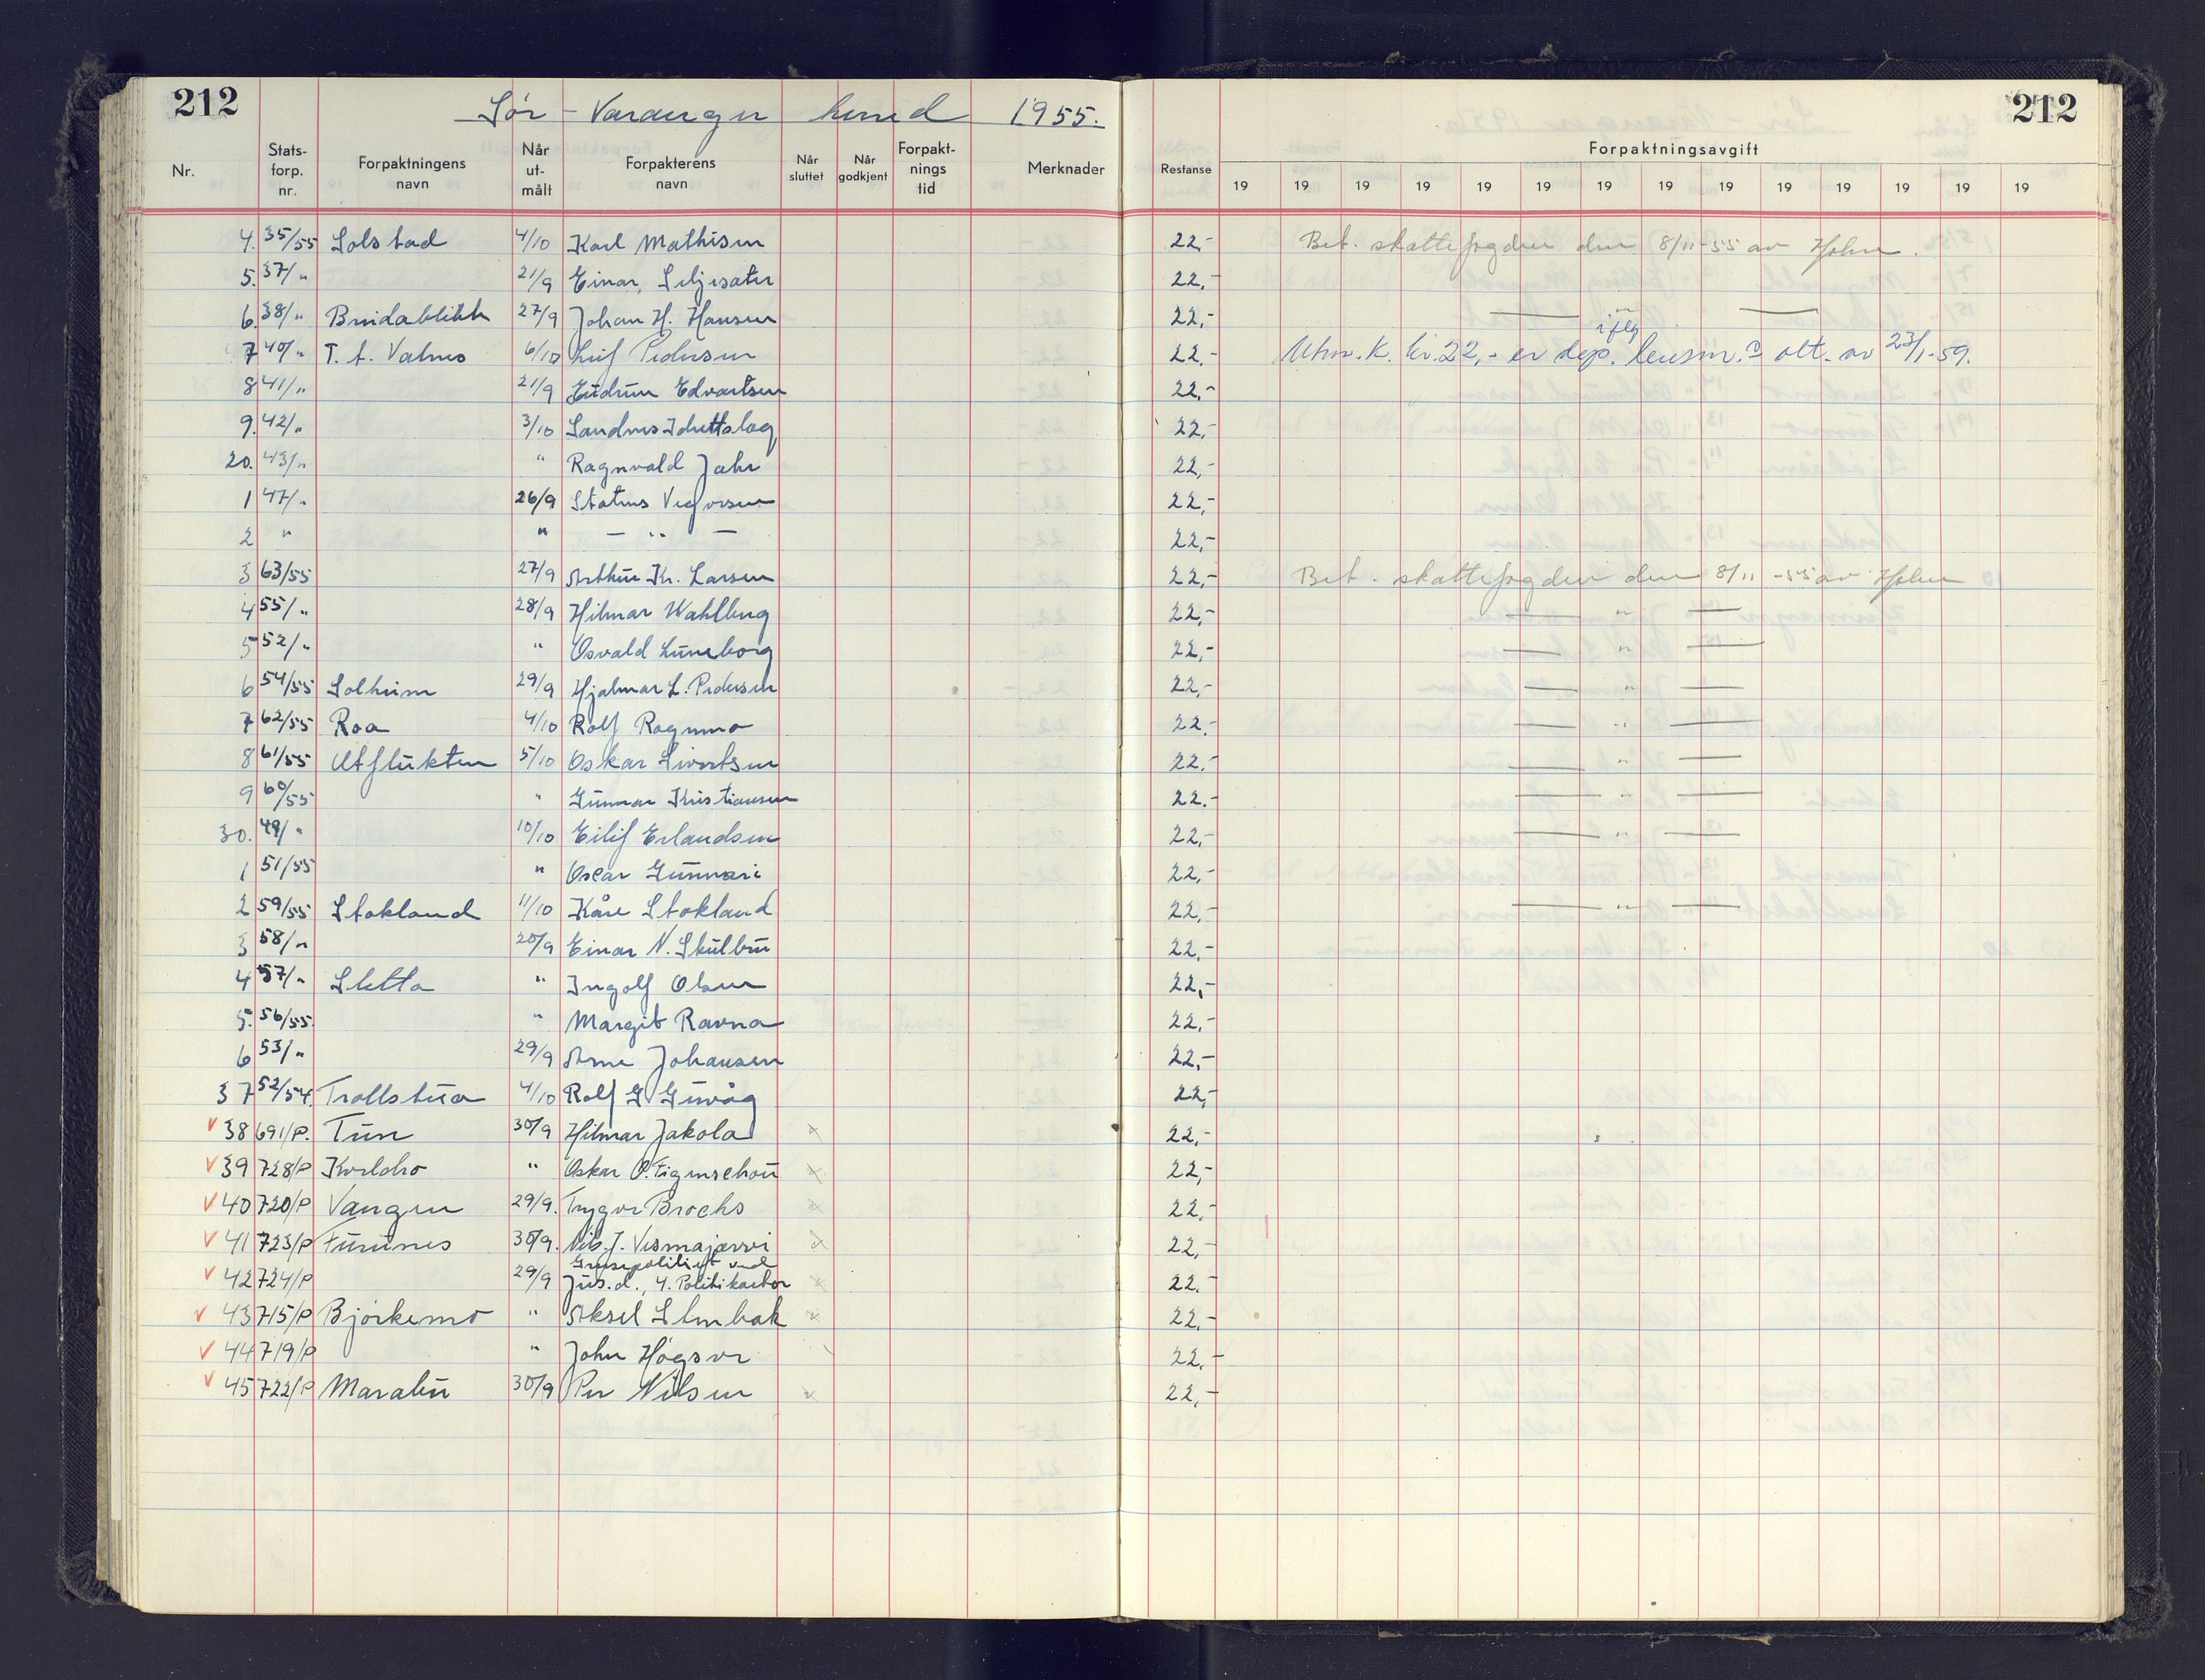 212
Sør-Varanger herred 1955.
212
Nr.
Stats-forp. nr.
Forpaktningens navn
Når ut-målt
Forpakterens navn
Når sluttet
Når godkjent
Forpakt-nings tid
Merknader
Restanse
Forpaktningsavgift
19 19 19 19 19 19 19 19 19 19 19 19 19 19
4. 35/55 Solstad 4/10 Karl Mathisen 22,- Bet. skattefogden den 8/11-55 av
5. 37/" 21/9 Einar Seljesæter 22,-
6. 38/" Breidablikk 27/9 Johan H. Hansen 22,- — " —
7 40/" T. t. Valnes 6/10 Leif Pedersen 22.- Utm. K. kr. 22,- er dep. iflg lensm.s att. av 23/1-59.
8 41/" 21/9 Gudrun Edvartsen 22,-
9. 42/" 3/10 Sandnes Idrettslag 22,-
20. 43/" " Ragnvald Jahr 22,-
1 47/" 26/9 Statens Vegvesen 22,-
2 " " — " — 22,-
3 63/55 27/9 Arthur Kr. Larsen 22,- Bet. skattefogden den 8/11-55 av
4 55/" 28/9 Hilmar Wahlberg 22,- — " —
5 52/" " Osvald Luneborg 22,- — " —
6 54/55 Solheim 29/9 Hjalmar L. Pedersen 22,- — " —
7 62/55 Roa 4/10 Rolf Ragnmo 22.- — " —
8 61/55 Utflukten 5/10 Oskar Sivertsen 22.- — " —
9 60/55 " Gunnar Kristiansen 22.- — " —
30. 49/" 10/10 Eilif Erlandsen 22,- — " —
1 51/55 " Oscar Gunnari 22,-
2 59/55 Stokland 11/10 Kåre Stokland 22,- — " —
3 58/" 20/9 Einar N. Skulbru 22,-
4 57/" Sletta " Ingolf Olsen 22,-
5. 56/55. " Margit Ravna 22,-
6 53/" 29/9 Arne Johansen 22,-
37 52/54. Trollstua 4/10 Rolf G. Guvåg 22,-
v 38 691/P. Tun 30/9 Hilmar Jakola x 22,-
v 39 728/P Kveldro " Oskar O. Figenschou x 22,-
v 40 720/P Vangen 29/9. Trygve Brochs x 22.-
v 41 723/P Furunes 30/9. Nils J. Vismajærvi x 22,-
v 42 724/P 29/9 Grensepolitiet ved Jus.d., 4. Politikontor x 22.-
v 43 715/P Bjørkemo " Aksel Stenbak x 22.-
v 44 719/P " John Høgsve 22.-
v 45 722/P Maralen 30/9 Per Nilsen x 22,-